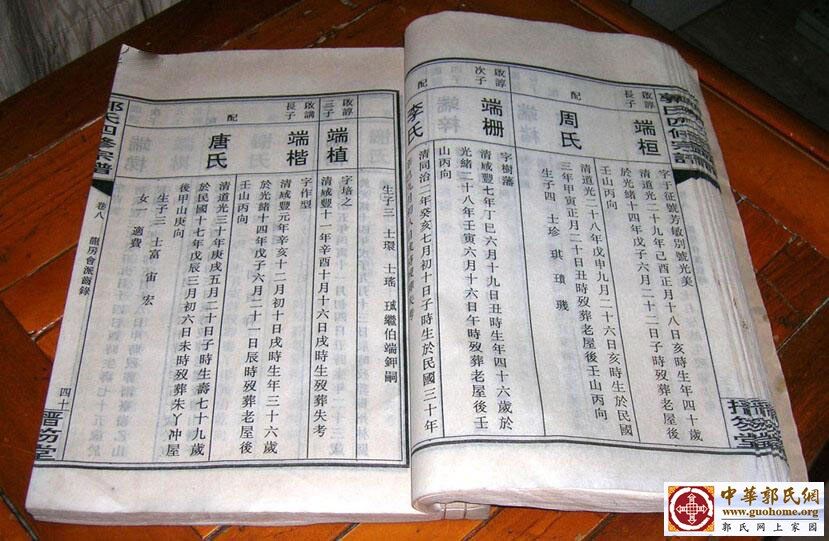 郭氏四修宗譜
搢笏堂
啟諄長子
端桓
字于征號芳敏別號光美
清道光二十九年己酉正月十八日亥時生年四十歲
於光緒十四年戊子六月二十二日子時歿葬老屋後
壬山丙向
配
周氏
清道光二十八年戊申九月二十六日亥時生於民國
三年甲寅正月二十日丑時歿葬老屋後壬山丙向
生子四 士珍 琪 璣
啟諄次子
端柵
字樹藩
清咸豐七年丁巳六月十九日丑時生年四十六歲於
光緒二十八年壬寅六月十六日酉時歿葬老屋後壬
山丙向
配
李氏
清同治二年癸亥七月初十日子時生於民國三十年
生子三 士環 士瑤 繼伯端鉀嗣
啟諄三子
端植
字培之
清咸豐十一年辛酉十月十六日戌時生歿葬失考
啟講長子
端楷
字作型
清咸豐元年辛亥十二月初十日戌時生年三十六歲
於光緒十四年戊子六月二十一日辰時歿葬老屋後
壬山丙向
配
唐氏
清道光三十年庚戌五月二十日子時生壽七十九歲
於民國十七年戊辰三月初六日未時歿葬朱丫冲屋
後甲山庚向
生子三 士富 宙 宏
女一 適費
郭氏四修宗譜
卷八
龍房會派齒錄
四十
搢笏堂
中華郭氏網
www.guohome.org
郭氏网上家园